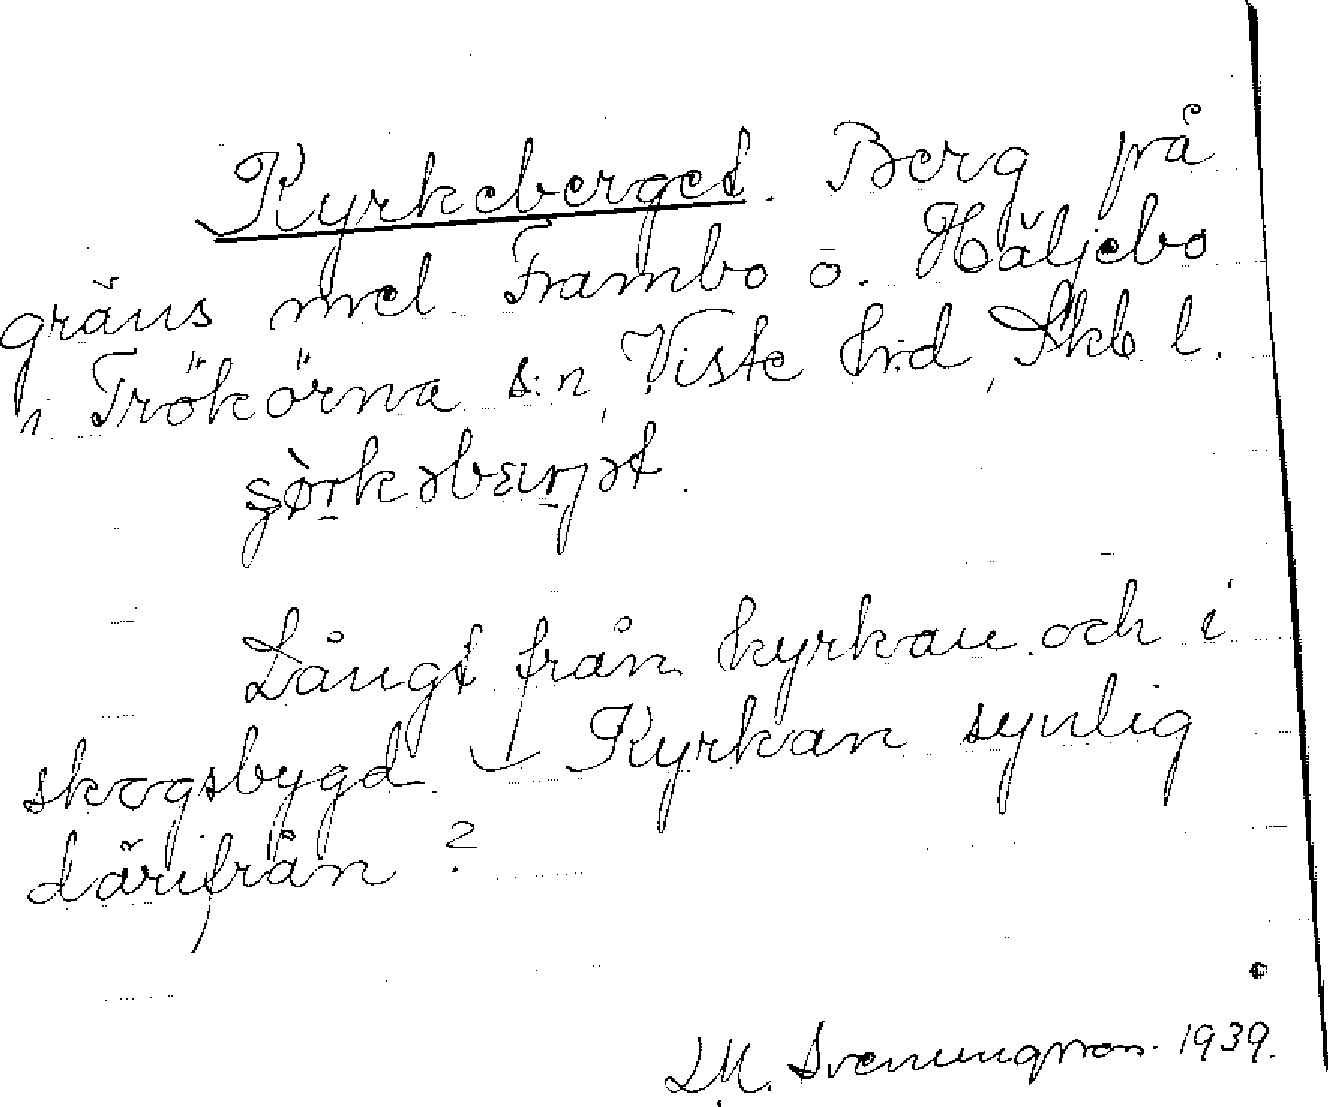 Kyrkeberget. Berg på
gräns mel Frambo o. Häljebo
i Trökörna s:n, Viste hrd, Skb l.
Långt från kyrkan och i
skogsbygd. Kyrkan synlig
därifrån?
L.M. Svenungsson. 1939.